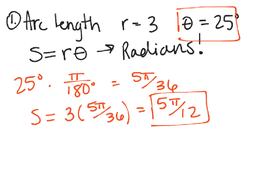 ① Arc length r = 3 θ = 25°
S = rθ → Radians!
25° · π/180° = 5π/36
S = 3(5π/36) = 5π/12